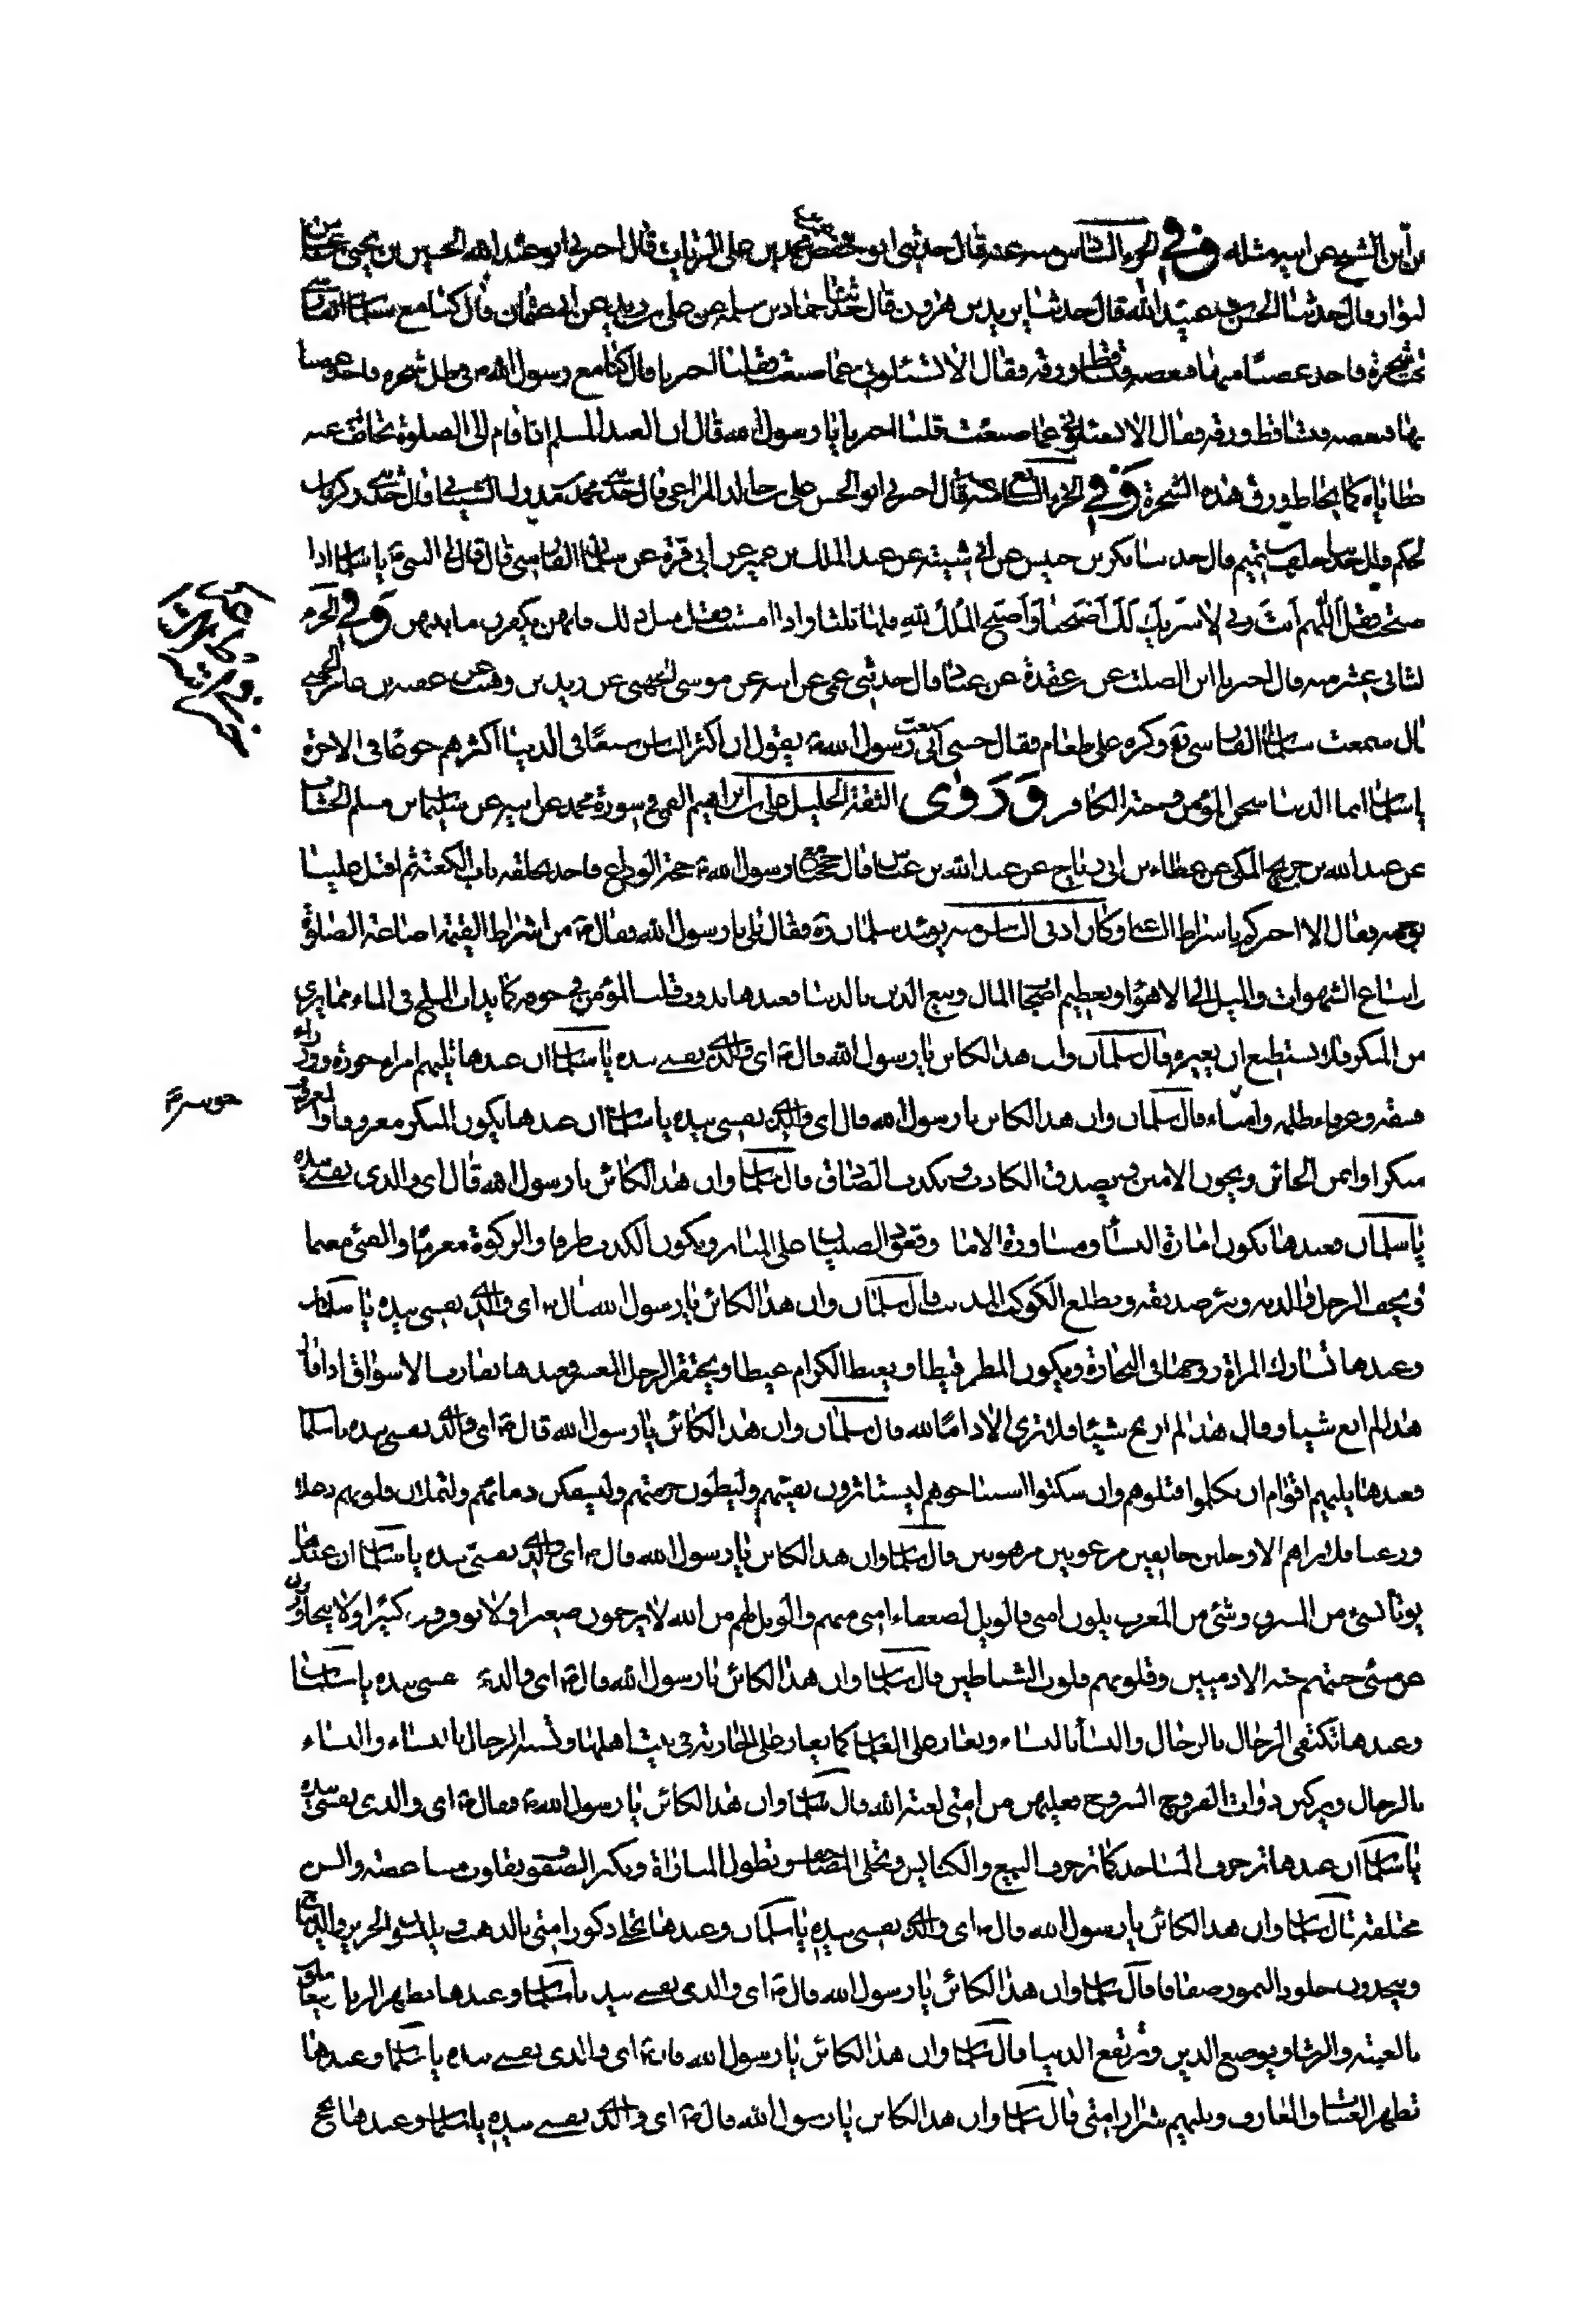 بن ابن الشيخ عن ابيه مثله وفي الجزء السادس منه عنه قال حدثني ابو حفص محمد بن علي الزيات قال اخبرني ابو عبد الله الحسين بن يحيى بن عياش
قال حدثنا الحسن بن عبيد الله قال حدثنا يزيد بن هرون قال حدثنا حماد بن سلمه عن علي بن زيد عن ابي عثمان قال كنا مع سلمان الفارسي
تحت شجرة فاخذ غصنا منها فنفضه فتساقط ورقه فقال الا تسئلوني عما صنعت فقلنا اخبرنا قال كنا مع رسول الله في ظل شجره فاخذ غصنا
منها فنفضه فتساقط ورقه فقال الا تسئلوني عما صنعت قلنا اخبرنا يا رسول الله قال ان العبد المسلم اذا قام الى الصلوة تحاتت عنه
خطاياه كما تحاط ورق هذه الشجرة وفي الجزء السابع منه قال اخبرني ابو الحسن علي بن خالد المراغي قال حدثني محمد الشيباني قال حدثني زكريا بن
الحكم قال حدثنا خلف بن تميم قال حدثنا بكر بن حبيش عن ابي شيبة عن عبد الملك بن عمير عن ابي قرة عن سلمان الفارسي قال قال لي النبي يا سلمان اذا
اصبحت فقل اللهم انت ربي لا شريك لك اصبحنا واصبح الملك لله قلها ثلثا واذا امسيت فقل مثل ذلك فانهن يكفرن ما بينهن وفي الجزء
الثاني عشر منه قال اخبرنا ابن الصلت عن عقدة عن عباد قال حدثني عمي عن ابيه عن موسى الجهني عن زيد بن وهب عن عطيه بن عامر الجهني
قال سمعت سلمان الفارسي وكره على طعام فقال حسبي اني سمعت رسول الله يقول ان اكثر الناس شبعا في الدنيا اكثرهم جوعا في الاخرة
يا سلمان انما الدنيا سجن المؤمن وجنة الكافر وروى الثقة الجليل علي بن ابراهيم القمي في سورة محمد عن ابيه عن سليمان بن مسلم الخشاب
عن عبد الله بن جريح المكي عن عطاء بن ابي رباح عن عبد الله بن عباس قال حججنا مع رسول الله حجة الوداع فاخذ بحلقه باب الكعبة ثم اقبل علينا
بوجهه فقال الا اخبركم باشراط الساعة وكان ادنى الناس منه يومئذ سلمان ره فقال بلى يا رسول الله فقال من اشراط القيمة اضاعة الصلوة
واتباع الشهوات والميل الى الاهواء وتعظيم اصحاب المال وبيع الدين بالدنيا فعندها يذوب قلب المؤمن في جوفه كما يذاب الملح في الماء مما يرى
من المنكر فلا يستطيع ان يغيره قال سلمان وان هذا لكائن يا رسول الله قال اي والذي نفسي بيده يا سلمان ان عندها يليهم امراء جورة ووزراء
فسقه وعرفاء ظلمه وامناء قال سلمان وان هذا لكائن يا رسول الله قال اي والذي نفسي بيده يا سلمان ان عندها يكون المنكر معروفا والمعروف
منكرا وائتمن الخائن ويخون الامين ويصدق الكاذب ويكذب الصادق قال سلمان وان هذا لكائن يا رسول الله قال اي والذي نفسي بيده
يا سلمان فعندها تكون امارة النساء ومشاورة الاماء وقعود الصبيان على المنابر ويكون الكذب طرفا والزكوة مغرما والفيء مغنما
ويجفو الرجل والديه ويبر صديقه ويطلع الكوكب المذنب قال سلمان وان هذا لكائن يا رسول الله قال اي والذي نفسي بيده يا سلمان
وعندها تشارك المراة زوجها في التجارة ويكون المطر قيظا ويغيظ الكرام غيظا ويحتقر الرجل المعسر فعندها تقارب الاسواق اذا قال
هذا لم ابع شيئا وقال هذا لم اربح شيئا فلا ترى الا ذاما لله قال سلمان وان هذا لكائن يا رسول الله قال اي والذي نفسي بيده يا سلمان
فعندها يليهم اقوام ان تكلموا قتلوهم وان سكتوا استباحوهم ليستاثرون بفيئهم وليطؤن حرمتهم وليسفكن دمائهم ولتملان قلوبهم دغلا
ورعبا فلا تراهم الا وجلين خائفين مرعوبين مرهوبين قال سلمان وان هذا لكائن يا رسول الله قال اي والذي نفسي بيده يا سلمان ان عندها
يؤتى بشيء من المشرق وشيء من المغرب يلون امتي فالويل لضعفاء امتي منهم والويل لهم من الله لا يرحمون صغيرا ولا يوقرون كبيرا ولا يتجاوزون
عن مسيء جثتهم جثة الادميين وقلوبهم قلوب الشياطين قال سلمان وان هذا لكائن يا رسول الله قال اي والذي نفسي بيده يا سلمان
وعندها تكتفي الرجال بالرجال والنساء بالنساء ويغار على الغلمان كما يغار على الجارية في بيت اهلها وتشبه الرجال بالنساء والنساء
بالرجال ويركبن ذوات الفروج السروج فعليهن من امتي لعنة الله قال سلمان وان هذا لكائن يا رسول الله فقال اي والذي نفسي بيده
يا سلمان ان عندها تزخرف المساجد كما تزخرف البيع والكنايس وتحلى المصاحف وتطول المنارة وتكثر الصفوف بقلوب متباغضة والسن
مختلفة قال سلمان وان هذا لكائن يا رسول الله قال اي والذي نفسي بيده يا سلمان وعندها تحلى ذكور امتي بالذهب ويلبسون الحرير والديباج
ويتخذون جلود النمور صفافا قال سلمان وان هذا لكائن يا رسول الله قال اي والذي نفسي بيده يا سلمان وعندها يظهر الربا ويتعاملون
بالعينة والرشا ويوضع الدين وترفع الدنيا قال سلمان وان هذا لكائن يا رسول الله قال اي والذي نفسي بيده يا سلمان وعندها
تظهر القينات والمعازف ويليهم شرار امتي قال سلمان وان هذا لكائن يا رسول الله قال اي والذي نفسي بيده يا سلمان وعندها تحج